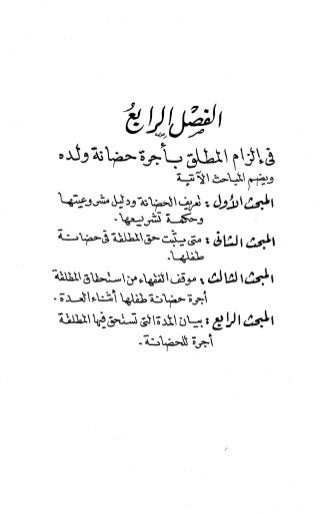 الفصل الرابع
فى إلزام المطلق بأجرة حضانة ولده
ويضم المباحث الآتية
المبحث الأول : تعريف الحضانة ودليل مشروعيتها
وحكمة تشريعها .
المبحث الثانى : متى يثبت حق المطلقة فى حضانة
طفلها .
المبحث الثالث : موقف الفقهاء من استحقاق المطلقة
أجرة حضانة طفلها أثناء العدة .
المبحث الرابع : بيان المدة التى تستحق فيها المطلقة
أجرة للحضانة .